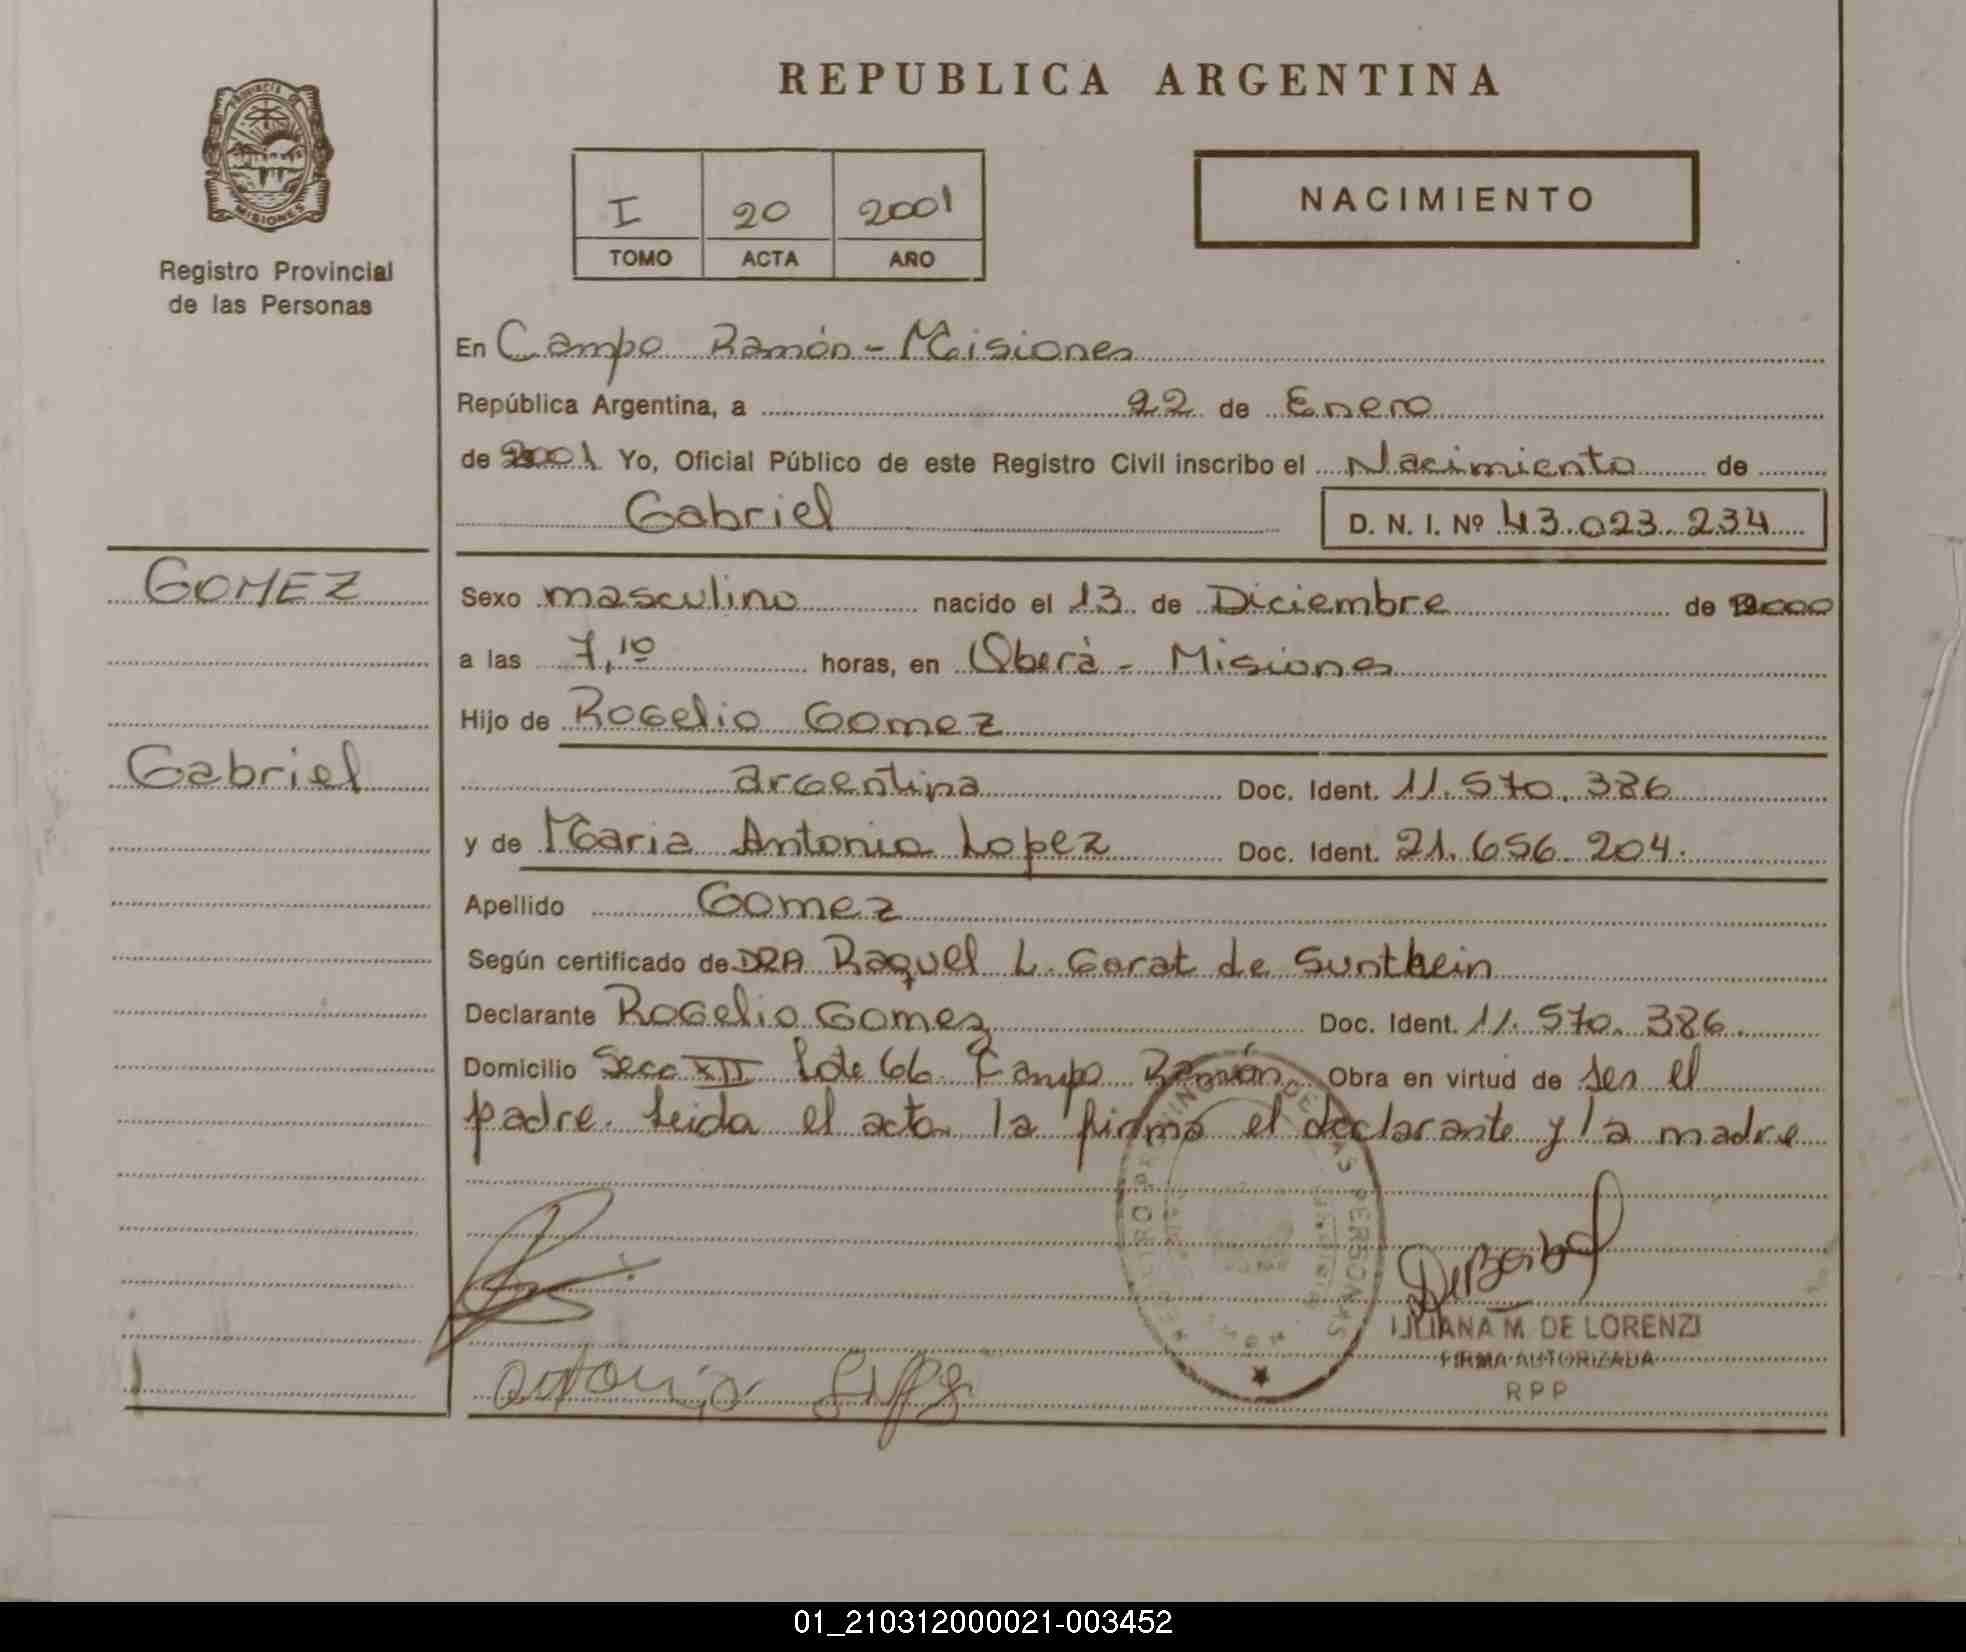 REPUBLICA ARGENTINA
PROVINCIA DE
MISIONES
Registro Provincial
de las Personas
I 20 2001
TOMO ACTA AÑO
NACIMIENTO
En Campo Ramón - Misiones
República Argentina, a 22 de Enero
de 2001 Yo, Oficial Público de este Registro Civil inscribo el Nacimiento de
Gabriel D. N. I. Nº 43.023.234
GOMEZ
Sexo masculino nacido el 13 de Diciembre de 2000
a las 7,10 horas, en Oberá - Misiones
Hijo de Rogelio Gomez
Gabriel
argentina Doc. Ident. 11.570.386
y de Maria Antonia Lopez Doc. Ident. 21.656.204.
Apellido Gomez
Según certificado de DRA Raquel L. Garat de Sunthein
Declarante Rogelio Gomez Doc. Ident. 11.570.386.
Domicilio Secc XII Lote 66 Campo Ramón Obra en virtud de ser el
padre. Leida el acta la firma el declarante y la madre
DE LAS PERSONAS
LILIANA M. DE LORENZI
FIRMA AUTORIZADA
RPP
01_210312000021-003452